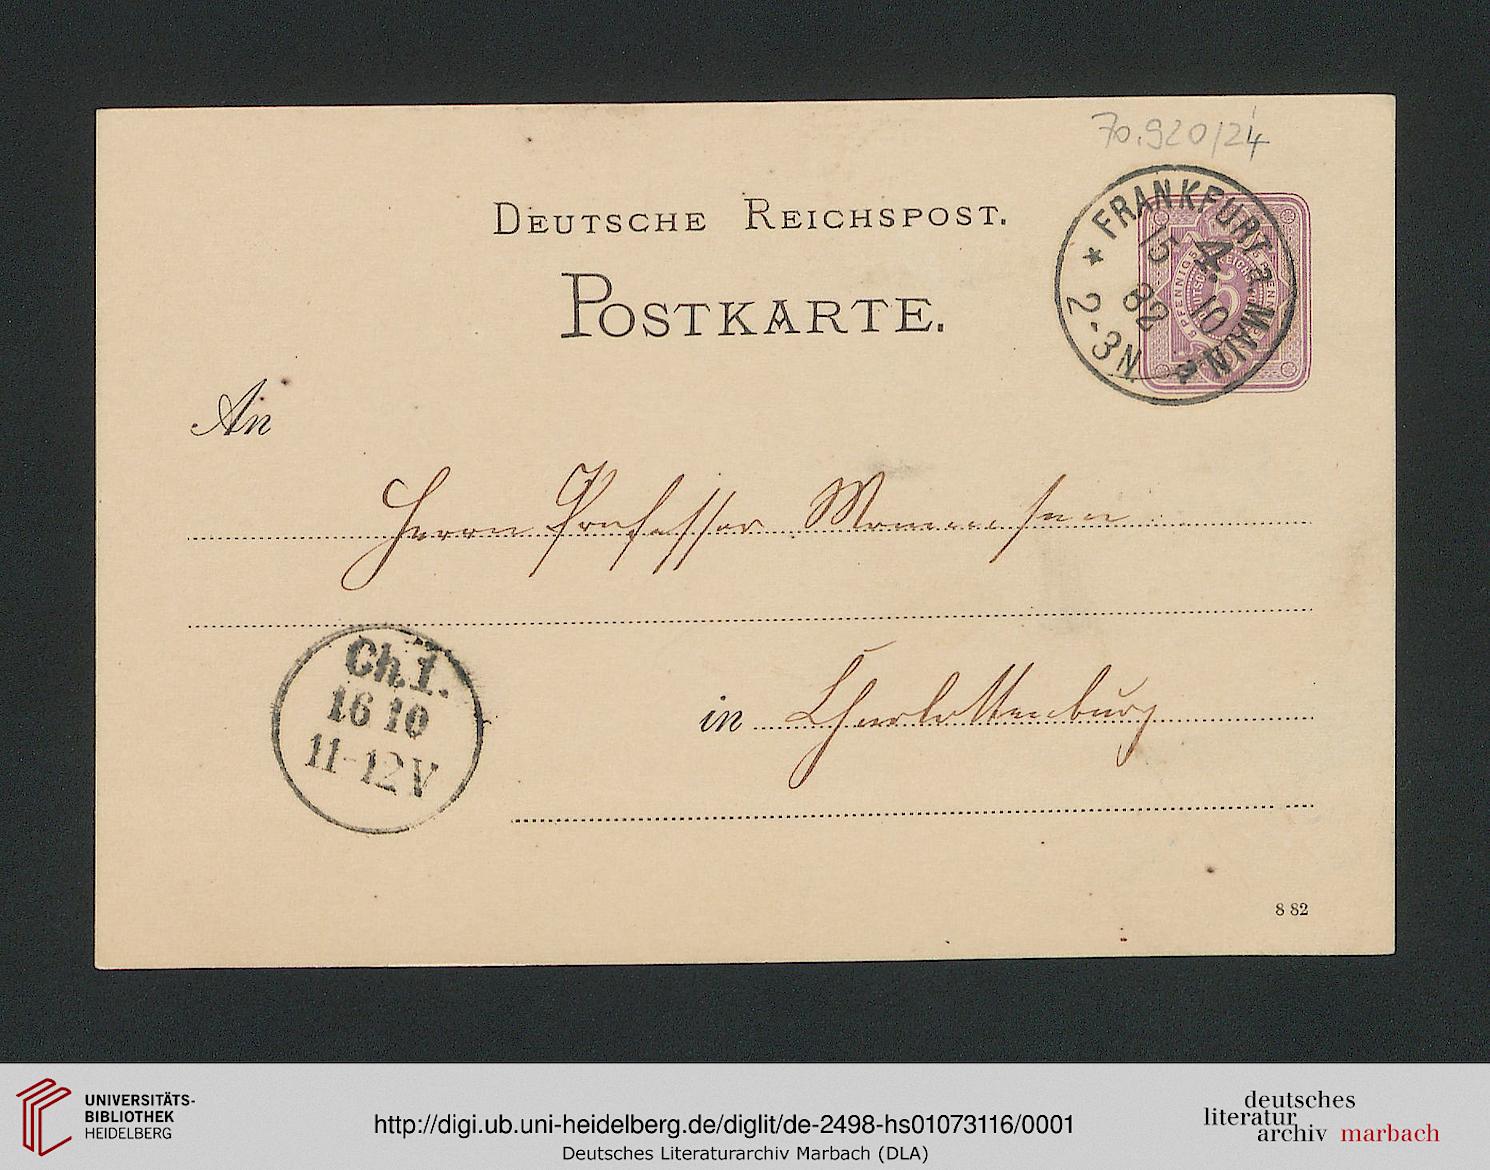 70.920/24
DEUTSCHE REICHSPOST.
POSTKARTE.
FRANKFURT a. MAIN
15 10
82
2-3N.
An
Herrn Professor Mommsen
Ch.1.
16 10
11-12V
in Charlottenburg
8 82
UNIVERSITÄTS-
BIBLIOTHEK
HEIDELBERG
http://digi.ub.uni-heidelberg.de/diglit/de-2498-hs01073116/0001
Deutsches Literaturarchiv Marbach (DLA)
deutsches
literatur
archiv marbach